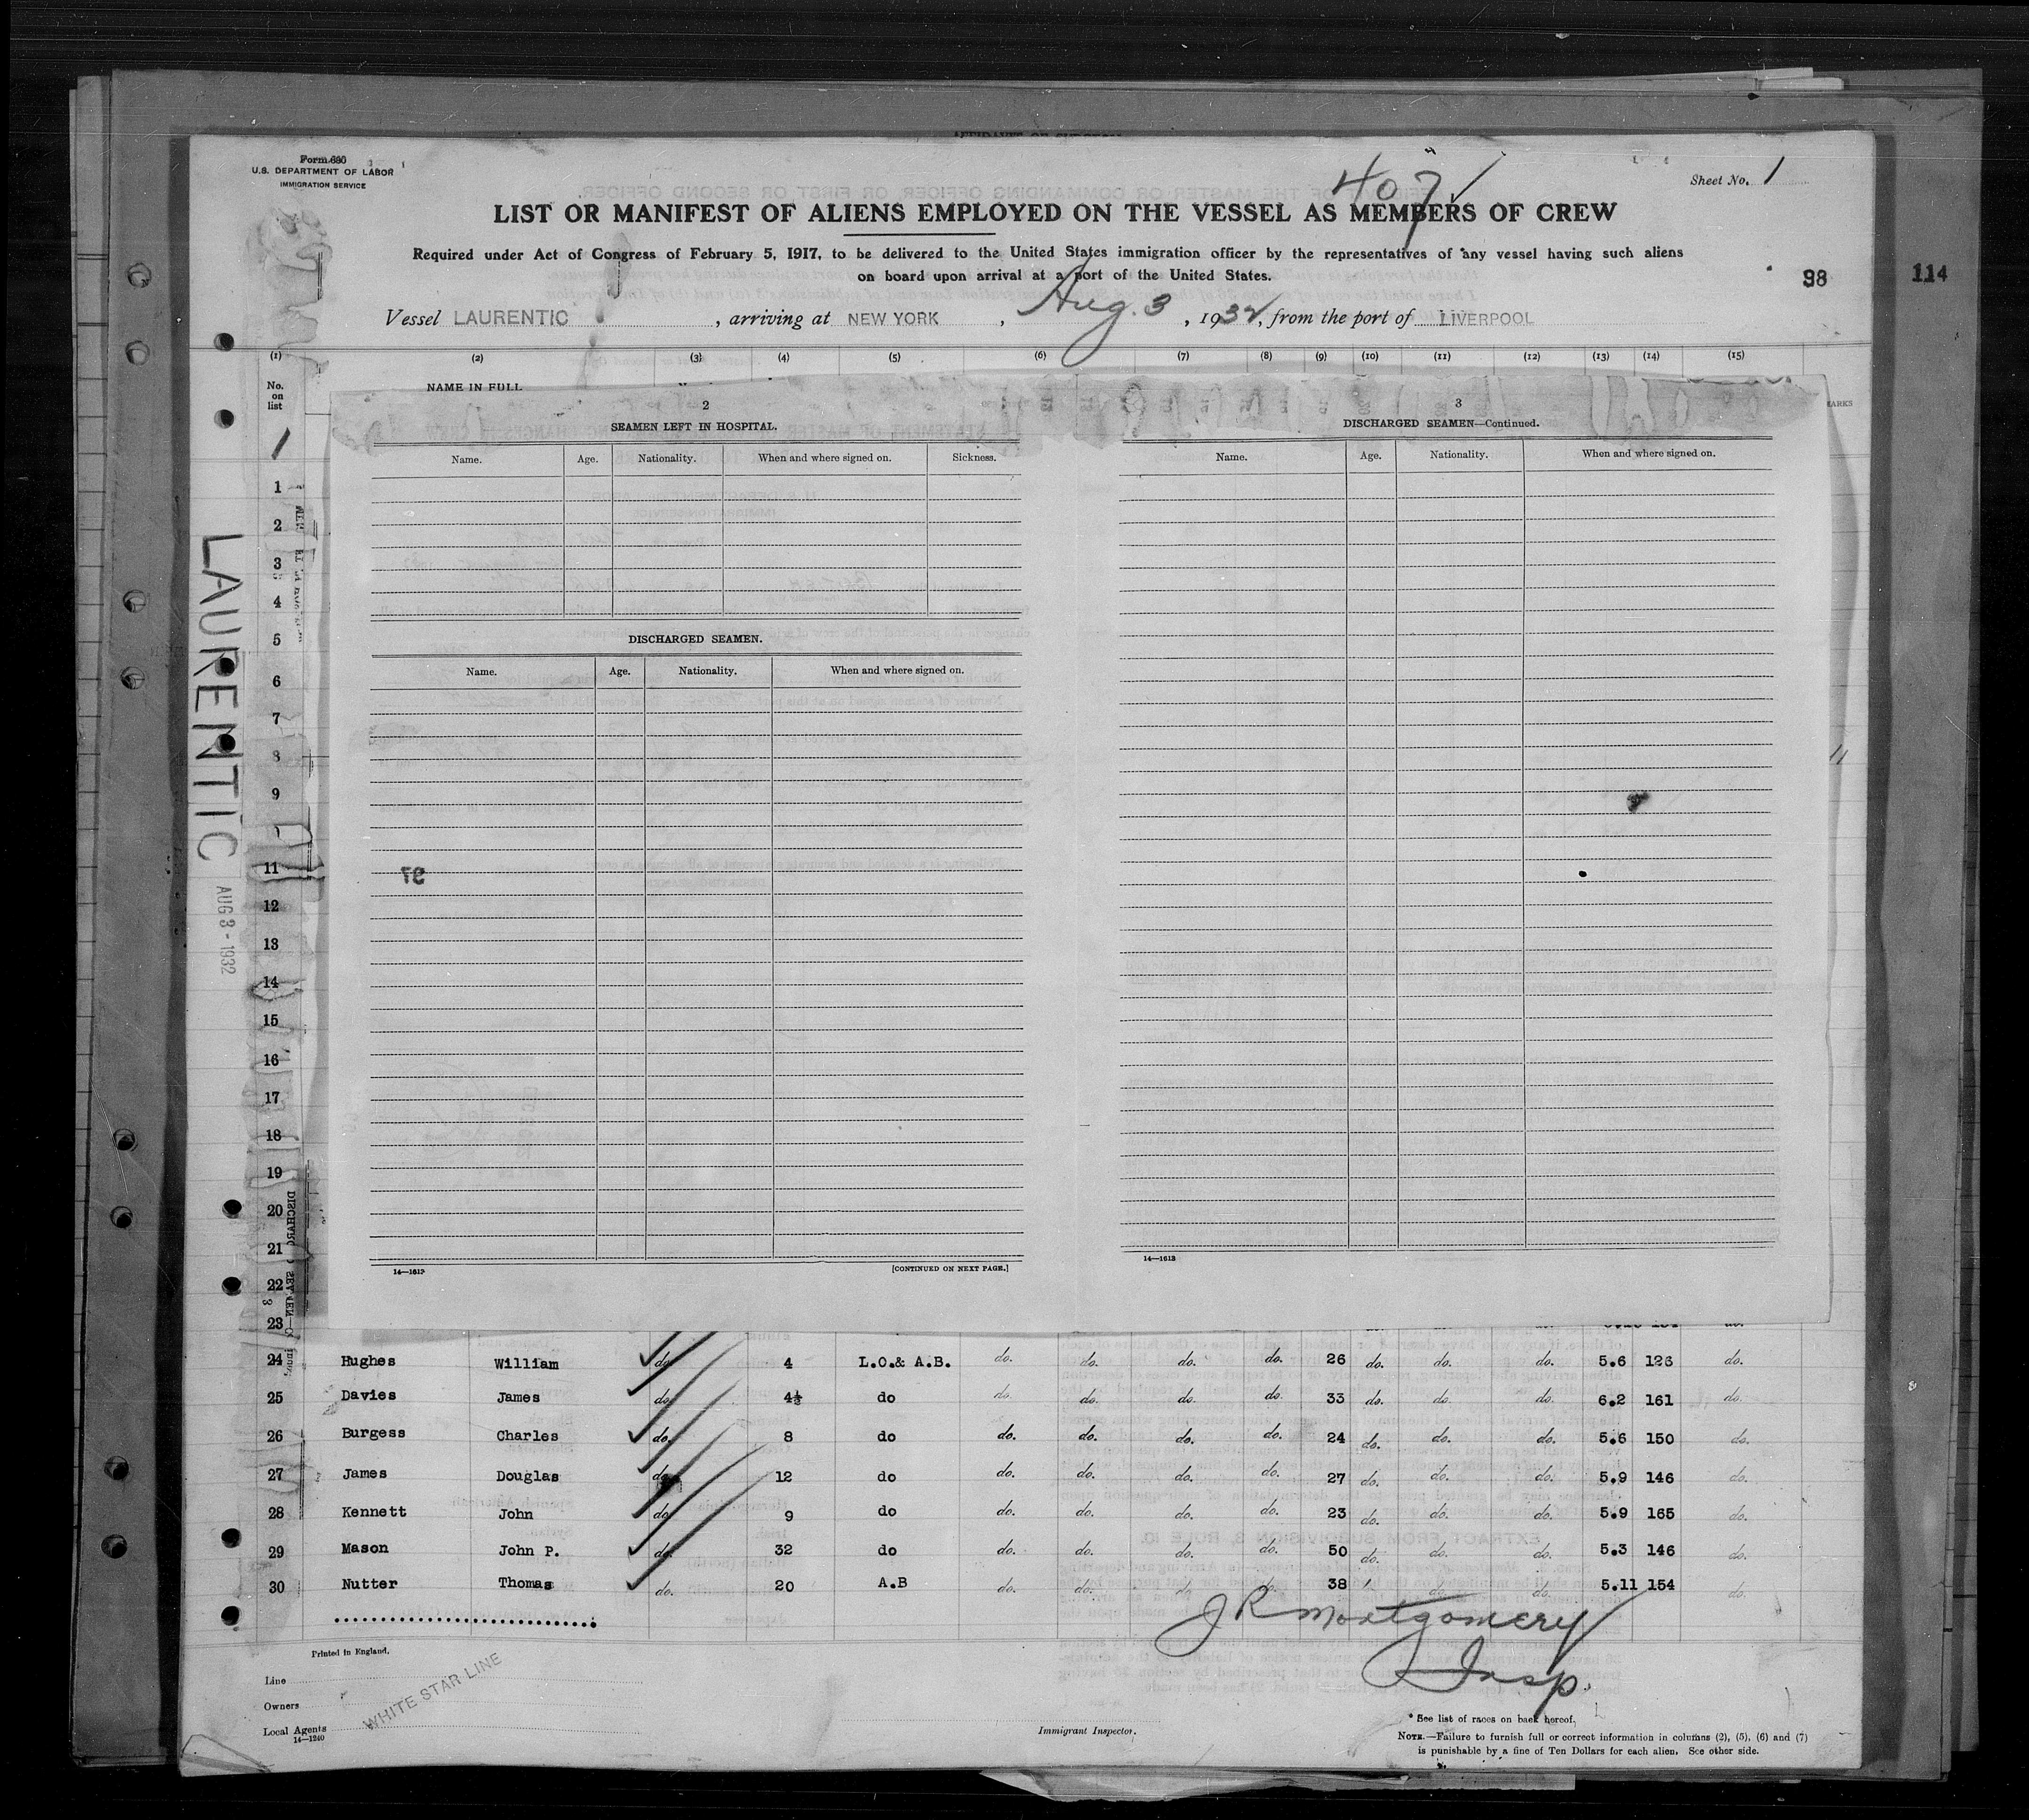 Form 680
U.S. DEPARTMENT OF LABOR
IMMIGRATION SERVICE
407 ✓
Sheet No. 1
LIST OR MANIFEST OF ALIENS EMPLOYED ON THE VESSEL AS MEMBERS OF CREW
Required under Act of Congress of February 5, 1917, to be delivered to the United States immigration officer by the representatives of any vessel having such aliens
on board upon arrival at a port of the United States.
98
114
Vessel LAURENTIC, arriving at NEW YORK, Aug. 3, 1932, from the port of LIVERPOOL
(1) (2) (3) (4) (5) (6) (7) (8) (9) (10) (11) (12) (13) (14) (15)
No. on list
NAME IN FULL
1
LAURENTIC
AUG 3 - 1932
2
SEAMEN LEFT IN HOSPITAL.
Name. Age. Nationality. When and where signed on. Sickness.
DISCHARGED SEAMEN.
Name. Age. Nationality. When and where signed on.
97
14—1613
[CONTINUED ON NEXT PAGE.]
3
DISCHARGED SEAMEN—Continued.
Name. Age. Nationality. When and where signed on.
14—1613
1
2
3
4
5
6
7
8
9
11
12
13
14
15
16
17
18
19
20
21
22
23
24 Hughes William do. 4 L.O.& A.B. do. do. do. do. 26 do. do. do. 5.6 126 do.
25 Davies James do. 4½ do do. do. do. do. 33 do. do. do. 6.2 161 do.
26 Burgess Charles do. 8 do do. do. do. do. 24 do. do. do. 5.6 150 do.
27 James Douglas do. 12 do do. do. do. do. 27 do. do. do. 5.9 146 do.
28 Kennett John do. 9 do do. do. do. do. 23 do. do. do. 5.9 165 do.
29 Mason John P. do. 32 do do. do. do. do. 50 do. do. do. 5.3 146 do.
30 Nutter Thomas do. 20 A.B do. do. do. do. 38 do. do. 5.11 154 do.
J R Montgomery
Insp.
Printed in England.
Line
Owners
Local Agents
WHITE STAR LINE
14—1240
Immigrant Inspector.
* See list of races on back hereof.
NOTE.—Failure to furnish full or correct information in columns (2), (5), (6) and (7)
is punishable by a fine of Ten Dollars for each alien. See other side.